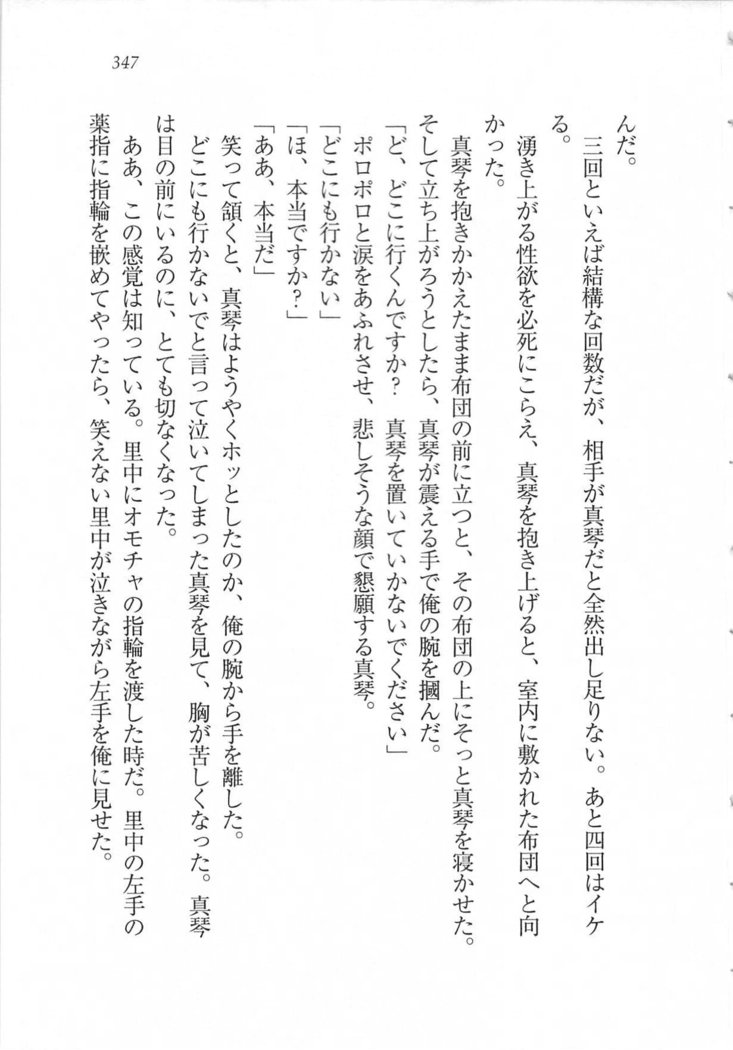 347
んだ。
　三回といえば結構な回数だが、相手が真琴だと全然出し足りない。あと四回はイケ
る。
　湧き上がる性欲を必死にこらえ、真琴を抱き上げると、室内に敷かれた布団へと向
かった。
　真琴を抱きかかえたまま布団の前に立つと、その布団の上にそっと真琴を寝かせた。
そして立ち上がろうとしたら、真琴が震える手で俺の腕を摑んだ。
「ど、どこに行くんですか？　真琴を置いていかないでください」
　ポロポロと涙をあふれさせ、悲しそうな顔で懇願する真琴。
「どこにも行かない」
「ほ、本当ですか？」
「ああ、本当だ」
　笑って頷くと、真琴はようやくホッとしたのか、俺の腕から手を離した。
　どこにも行かないでと言って泣いてしまった真琴を見て、胸が苦しくなった。真琴
は目の前にいるのに、とても切なくなった。
　ああ、この感覚は知っている。里中にオモチャの指輪を渡した時だ。里中の左手の
薬指に指輪を嵌めてやったら、笑えない里中が泣きながら左手を俺に見せた。